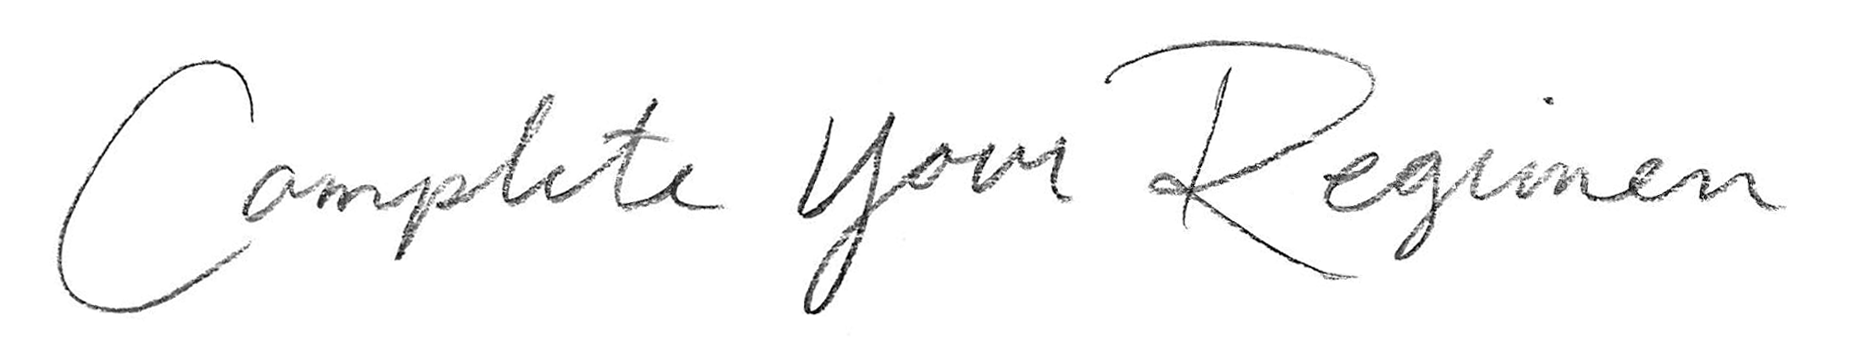 Complete Your Regimen